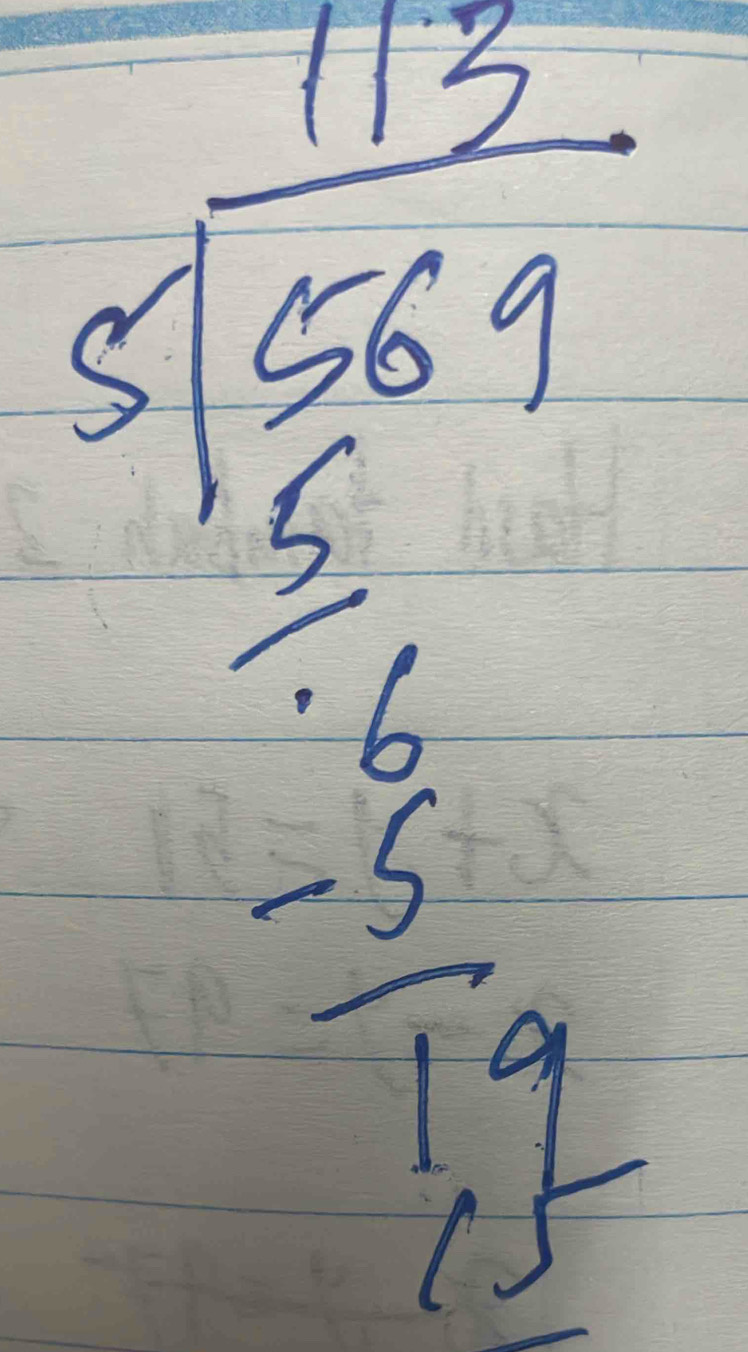 113
5 569
5
6
- 5
19
15